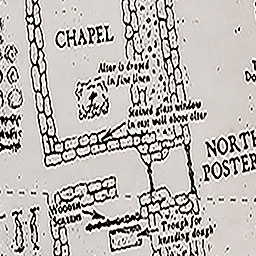 CHAPEL
Altar is draped
in fine linen
Stained glass window
in east wall above altar
NORTH
POSTER
Wooden
Trough for
kneading dough